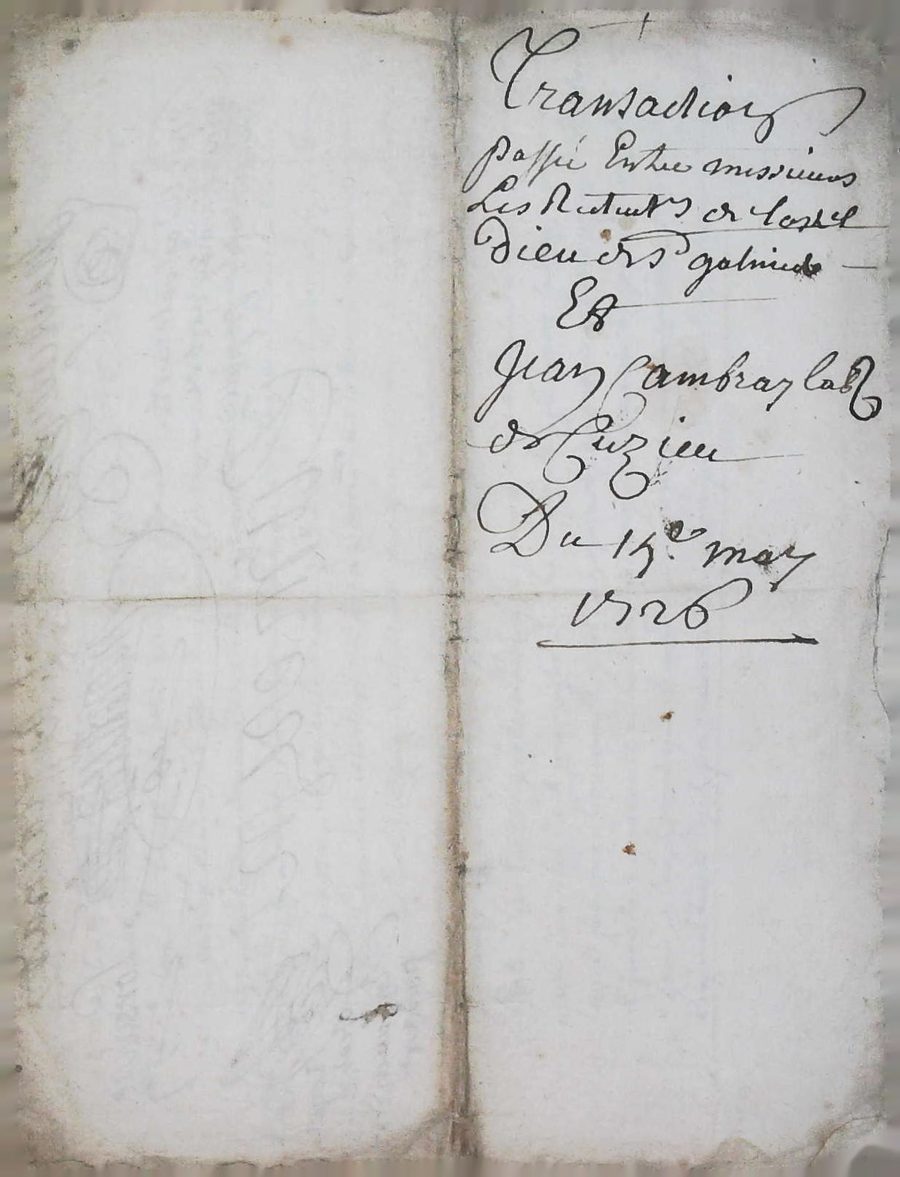 Transaction
passé Entre messieurs
Les Recteurs de Lostel
Dieu de St galmier
Et
Jean Cambray lab^r
de Cuzieu
Du 15^e may
1726